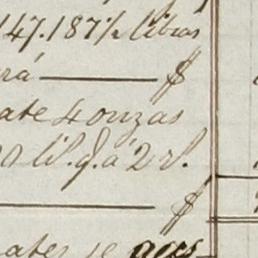 147.187½ libras
rá — $
ate 4 onzas
0 lil. q. a 2 rl.
— $